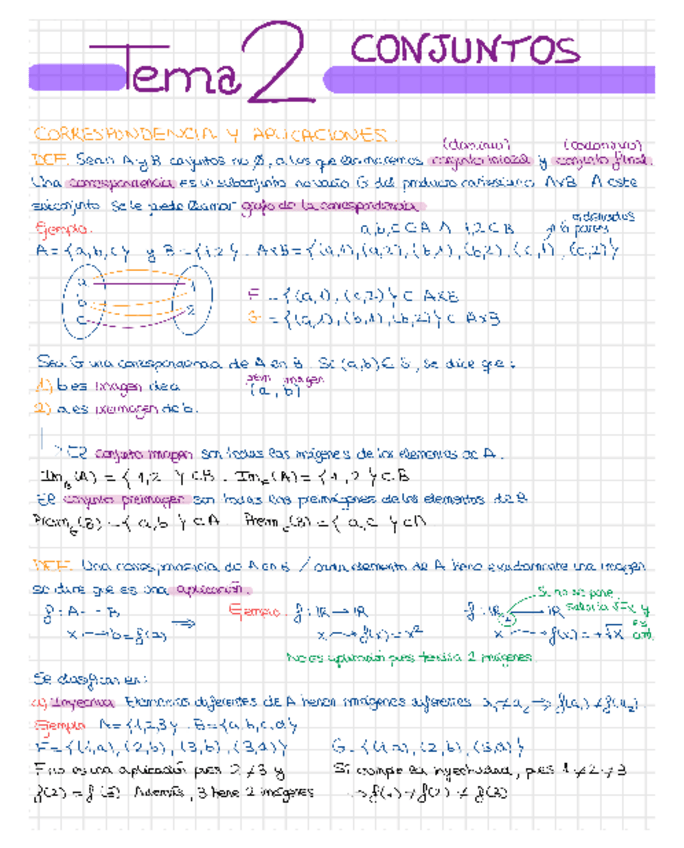 Tema 2 CONJUNTOS
CORRESPONDENCIA Y APLICACIONES.
(dominio) (codominio)
DEF. Sean A y B conjuntos no Ø, a los que llamaremos conjunto inicial y conjunto final.
Una correspondencia es un subconjunto no vacío G del producto cartesiano AxB. A este
subconjunto se le puede llamar grafo de la correspondencia
Ejemplo. a,b,c ∈ A ∧ 1,2 ∈ B 6 pares ordenados
A = {a,b,c} y B = {1,2}. AxB = {(a,1), (a,2), (b,1), (b,2), (c,1), (c,2)}
a
b
c
1
2
F = {(a,1), (c,2)} ⊂ AxB
G = {(a,1), (b,1), (b,2)} ⊂ AxB
Sea G una correspondencia de A en B. Si (a,b) ∈ G, se dice que:
1) b es imagen de a
imagen
(a, b)
2) a es preimagen de b.
El conjunto imagen son todas las imágenes de los elementos de A.
Im_G(A) = {1,2} ⊂ B. Im_F(A) = {1,2} ⊂ B
El conjunto preimagen son todas las preimágenes de los elementos de B
Preim_G(B) = {a,b} ⊂ A Preim_F(B) = {a,c} ⊂ A
DEF. Una correspondencia de A en B / cada elemento de A tiene exactamente una imagen
se dice que es una aplicación.
f: A → B
x → b=f(x)
⇒
Ejemplo. f: ℝ → ℝ
x → f(x) = x²
f: ℝ+ → ℝ
x → f(x) = +√x
Si no se pone
No es aplicación pues tendría 2 imágenes
Se clasifican en:
a) Inyectiva Elementos diferentes de A tienen imágenes diferentes a₁≠a₂ → f(a₁) ≠ f(a₂)
Ejemplo A = {1,2,3}. B = {a,b,c,d}
F = {(1,a), (2,b), (3,b), (3,d)} G = {(1,a), (2,b), (3,d)}
F no es una aplicación pues 2≠3 y Sí cumple la inyectividad, pues 1≠2≠3
f(2) = f(3) Además, 3 tiene 2 imágenes → f(1) ≠ f(2) ≠ f(3)